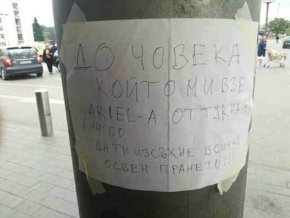 ДО ЧОВЕКА
КОЙТО МИ ВЗЕ
ARIEL-A ОТ ТУК НА
14:00
ДА ТИ ИЗСЪХНЕ ВСИЧКО
ОСВЕН ПРАНЕТО!!!